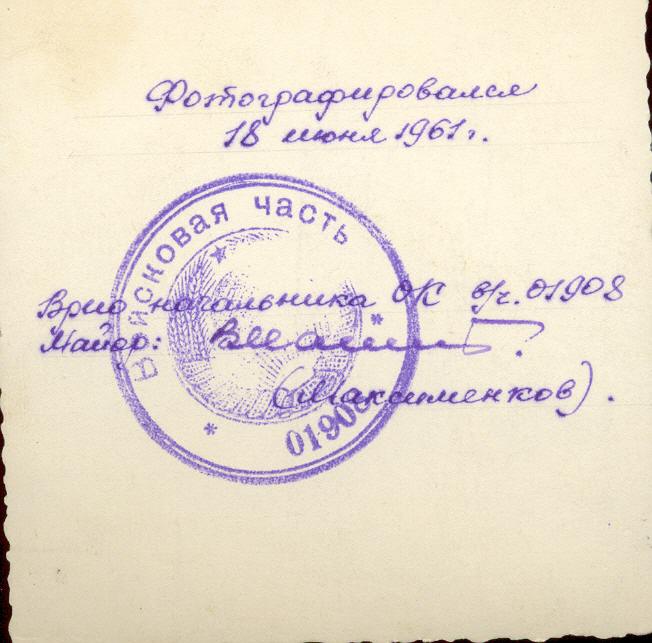 Фотографировался
18 июня 1961 г.
Войсковая часть
Врио начальника ОК в/ч. 01908
Майор:
(Максименков).
01908